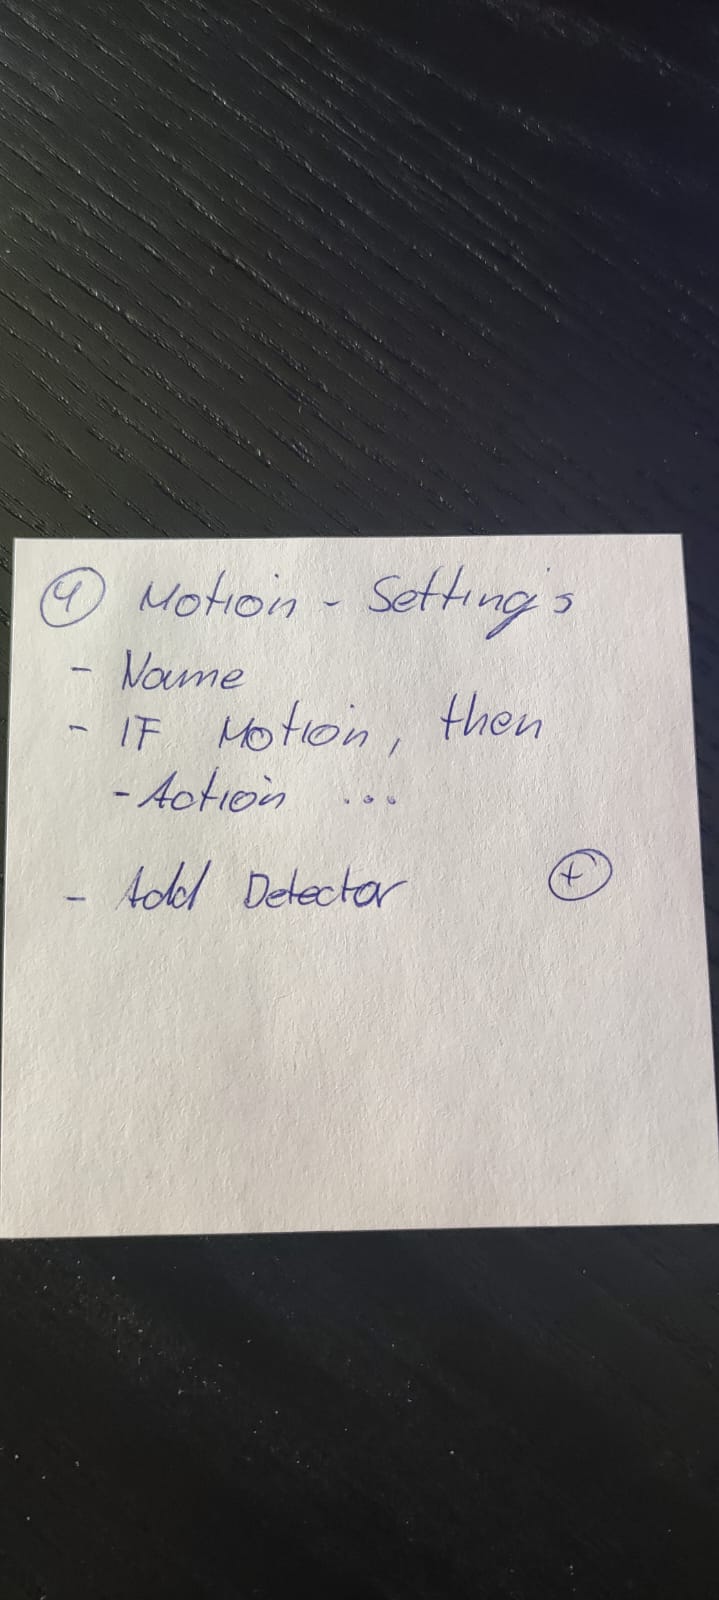 ④ Motion - Setting's
- Name
- IF Motion, then
- Action ...
- Add Detector ⊕